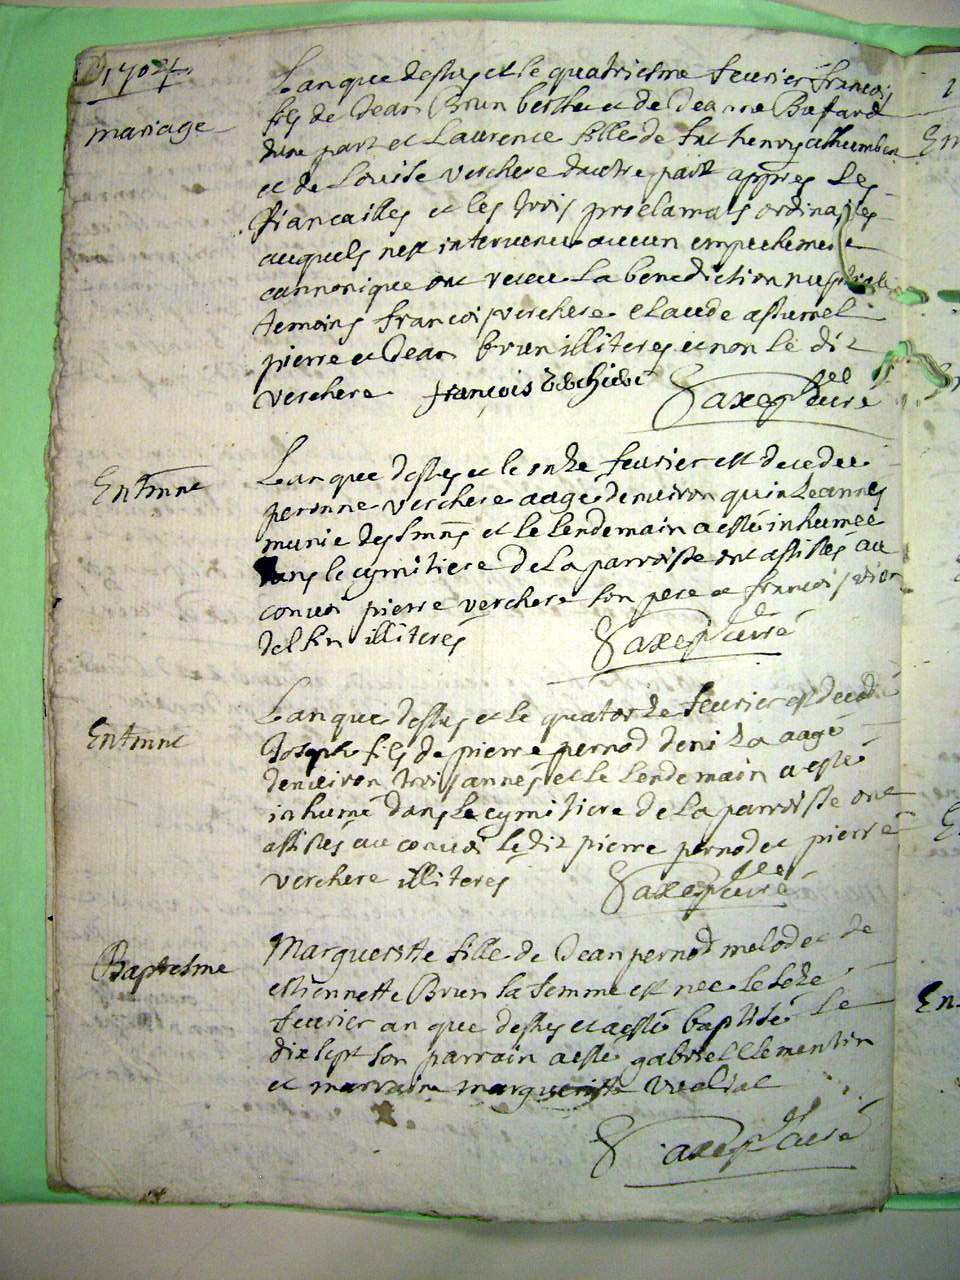 1704
mariage
Lan que dessus et le quatriesme feurier françois
fils de Jean Brun berthet et de Jeanne Bastard
dune part et Laurence fille de fut henry
et de Louise verchere dautre part appres les
fiancailles et les trois proclamats ordinaires
auquels nest intervenu aucun empechement
cannonique ont receu la benediction nuptiale
temoins francois verchere claude
pierre et Jean brun illiteres et non le dit
verchere françois
curé
Lan que dessus et le onze feurier est decedee
peronne verchere aagé denuiron quinze annes
munie des et le lendemain a esté inhumée
dans le cymitiere de la parroisse ont assistés au
conuoi pierre verchere son pere et francois
illiteres
curé
Lan que dessus et le quatorze feurier est decedé
Joseph fils de pierre pernod aagé
denuiron trois annés et le lendemain a esté
inhumé dans le cymitiere de la parroisse ont
assistés au conuoi le dit pierre pernod et pierre
verchere illiteres
curé
Baptesme
Margueritte fille de Jean pernod et de
estiennette Brun sa femme est nee le seze
feurier an que dessus et a esté baptisé le
dix sept son parrain a esté gabriel Clementin
et marraine margueritte
curé